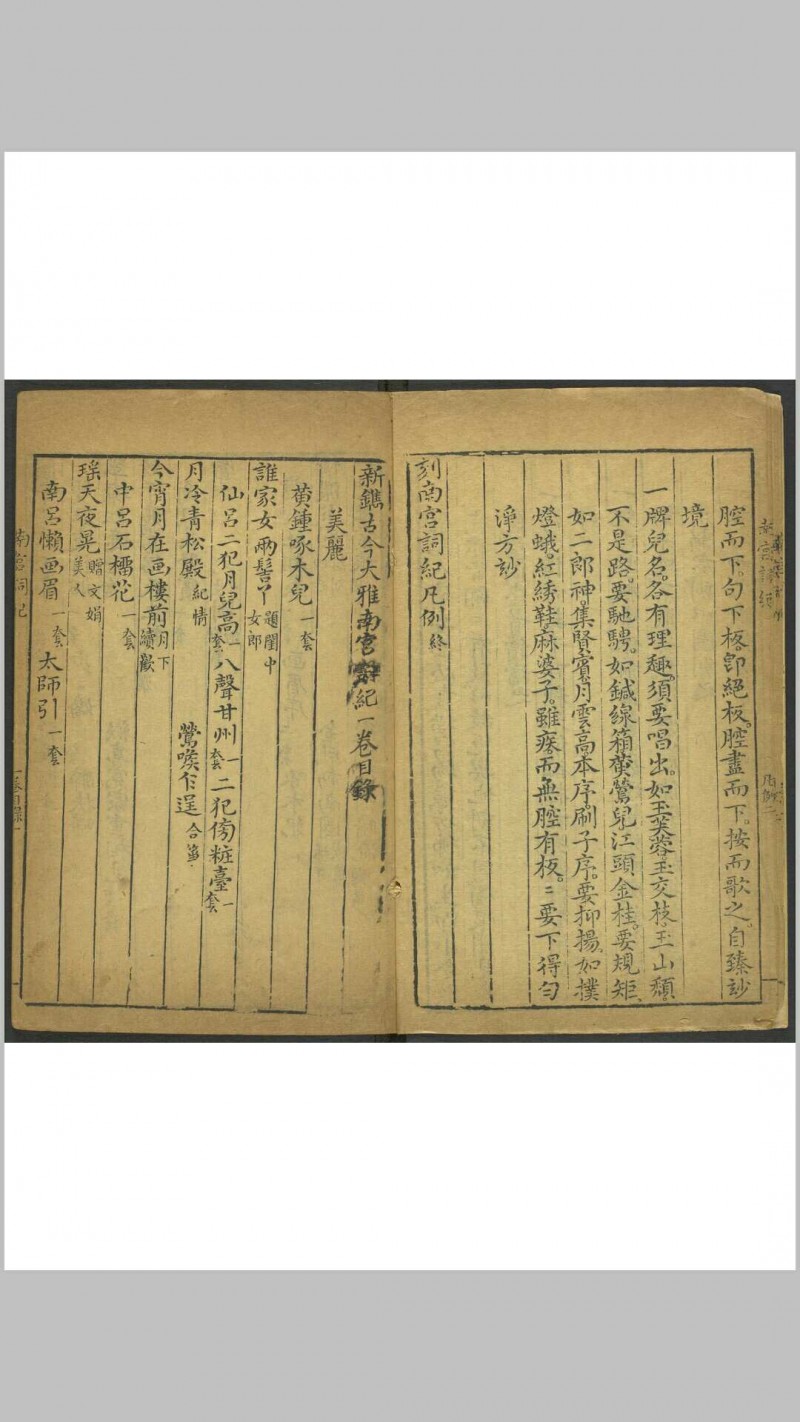 腔而下。句下板。卽絕板。腔盡而下。按而歌之。自臻玅
境
一牌兒名。各有理趣。須要唱出。如玉芙蓉。玉交枝。玉山頹。
不是路。要馳騁。如鍼線箱。黄鶯兒。江頭金桂。要規矩。
如二郎神。集賢賓。月雲高。本序。刷子序。要抑揚。如撲
燈蛾。紅綉鞋。麻婆子。雖疾而無腔有板。〻要下得勻
淨方玅
刻南宮詞紀凡例終
新鐫古今大雅南宮辭紀一卷目錄
美麗
黄鍾啄木兒一套
誰家女兩髻丫題閨中女郎
仙呂二犯月兒高一套八聲甘州一套二犯傍粧臺一套
月冷青松殿紀情 鶯喉乍逞合箏
今宵月在画樓前月下續歡
中呂石榴花一套
瑶天夜晃贈文娟美人
南呂懶画眉一套太師引一套
南宮詞紀